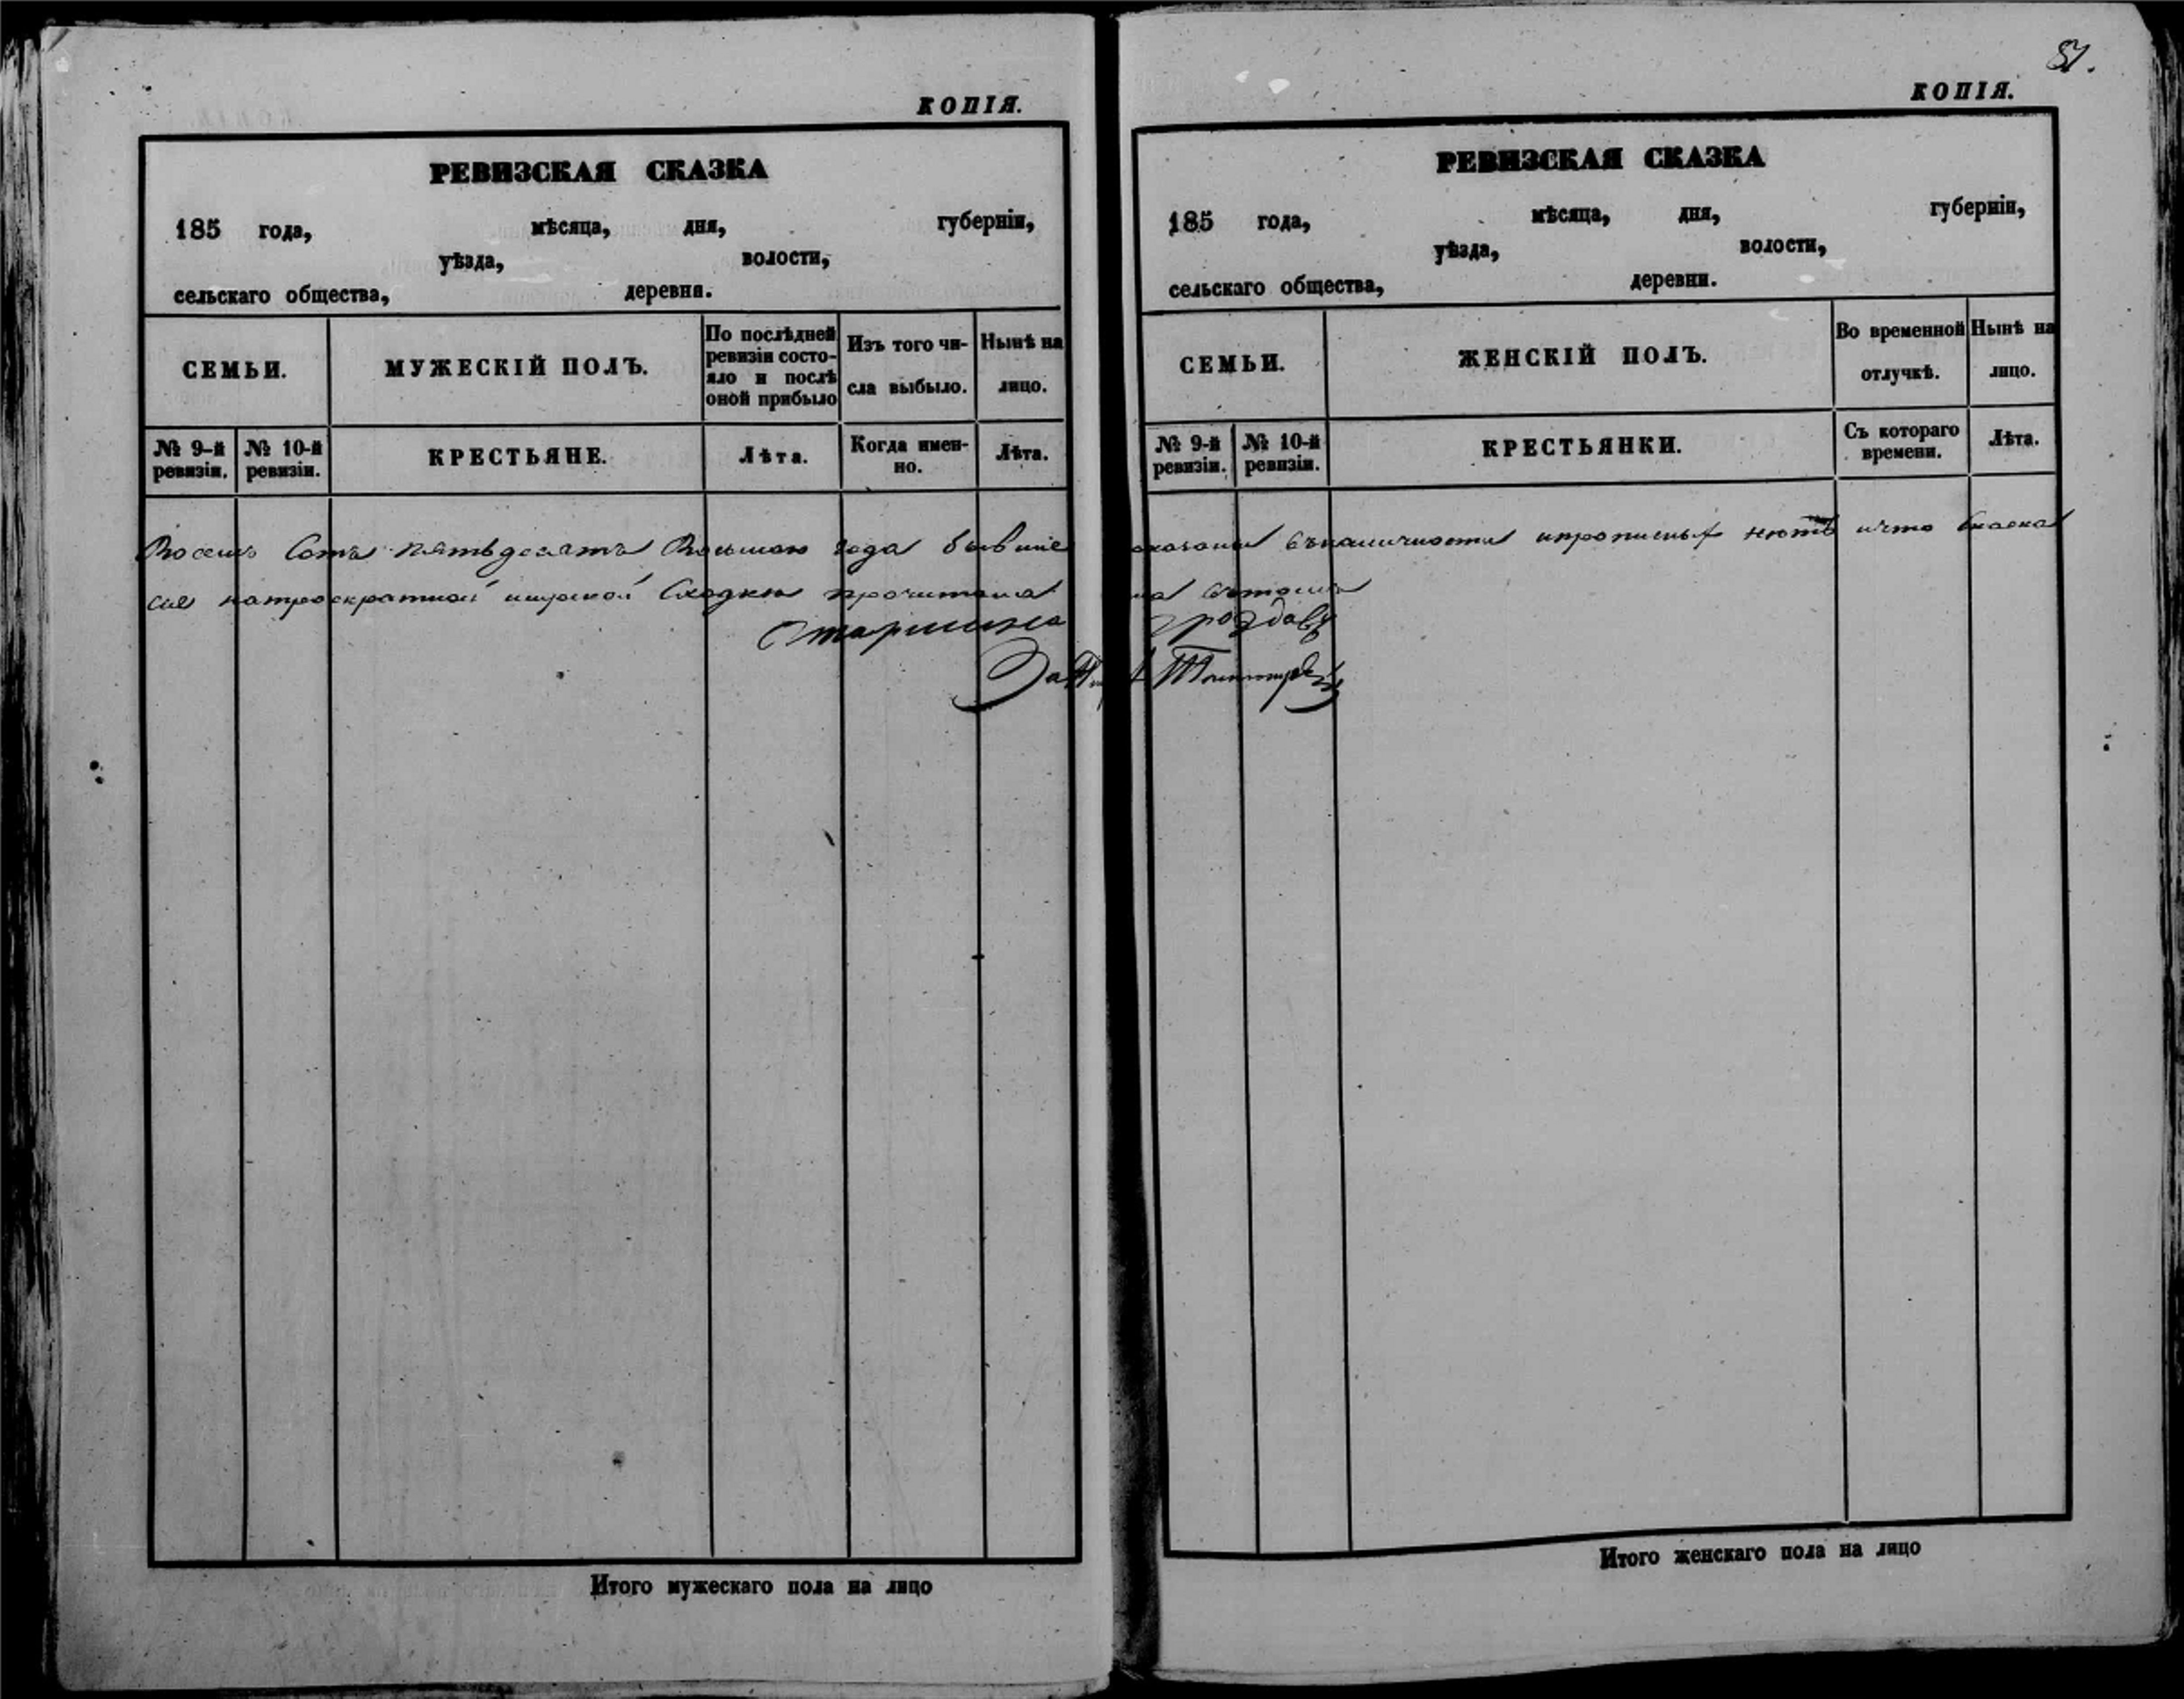 КОПІЯ.
РЕВИЗСКАЯ СКАЗКА
185 года, мѣсяца, дня, губерніи,
уѣзда, волости,
сельскаго общества, деревни.
СЕМЬИ.
МУЖЕСКІЙ ПОЛЪ.
По послѣдней
ревизіи состо-
яло и послѣ
оной прибыло
Изъ того чи-
сла выбыло.
Нынѣ на
лицо.
№ 9-й
ревизіи.
№ 10-й
ревизіи.
КРЕСТЬЯНЕ.
Лѣта.
Когда имен-
но.
Лѣта.
Восемь Сотъ пятьдесятъ Восьмаго года бывшіе
сіе прочитана
Старшина
Итого мужескаго пола на лицо
51.
КОПІЯ.
РЕВИЗСКАЯ СКАЗКА
185 года, мѣсяца, дня, губерніи,
уѣзда, волости,
сельскаго общества, деревни.
СЕМЬИ.
ЖЕНСКІЙ ПОЛЪ.
Во временной
отлучкѣ.
Нынѣ на
лицо.
№ 9-й
ревизіи.
№ 10-й
ревизіи.
КРЕСТЬЯНКИ.
Съ котораго
времени.
Лѣта.
ипрописныхъ нѣтъ ичто
Итого женскаго пола на лицо